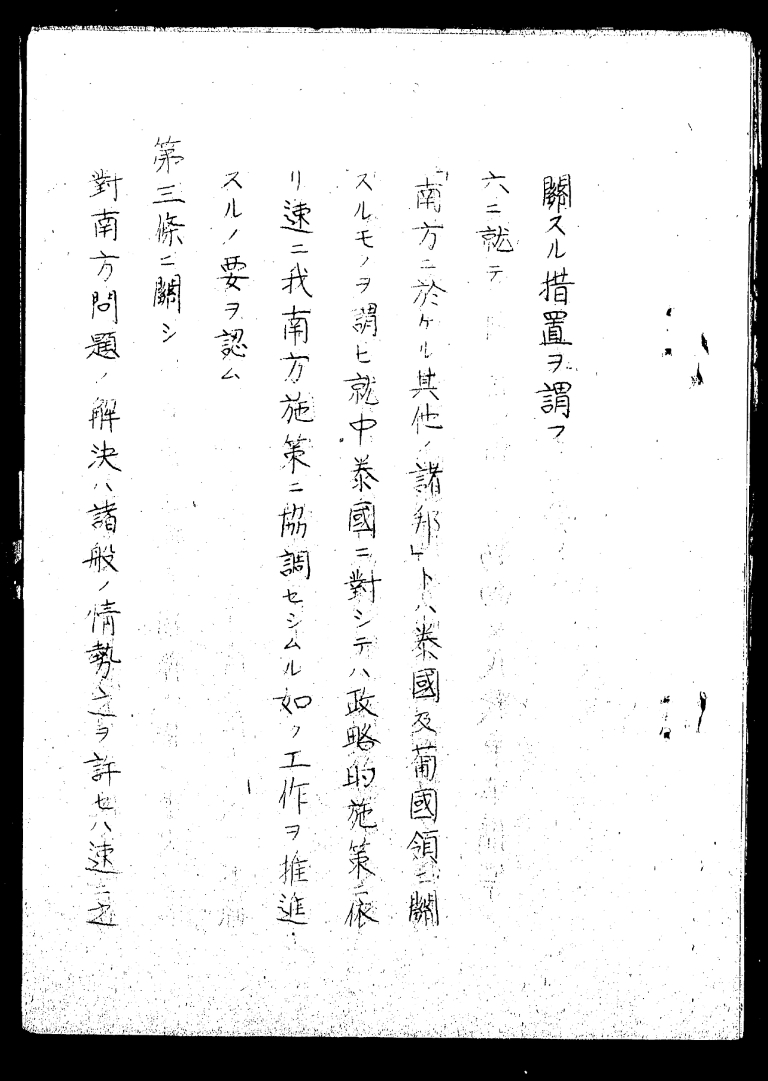 關スル措置ヲ謂フ
六ニ就テ
「南方ニ於ケル其他ノ諸邦」トハ泰國及葡國領ニ關
スルモノヲ謂ヒ就中泰國ニ對シテハ政略的施策ニ依
リ速ニ我南方施策ニ協調セシムル如ク工作ヲ推進
スルノ要ヲ認ム
第三條ニ關シ
對南方問題ノ解決ハ諸般ノ情勢之ヲ許セハ速ニ之